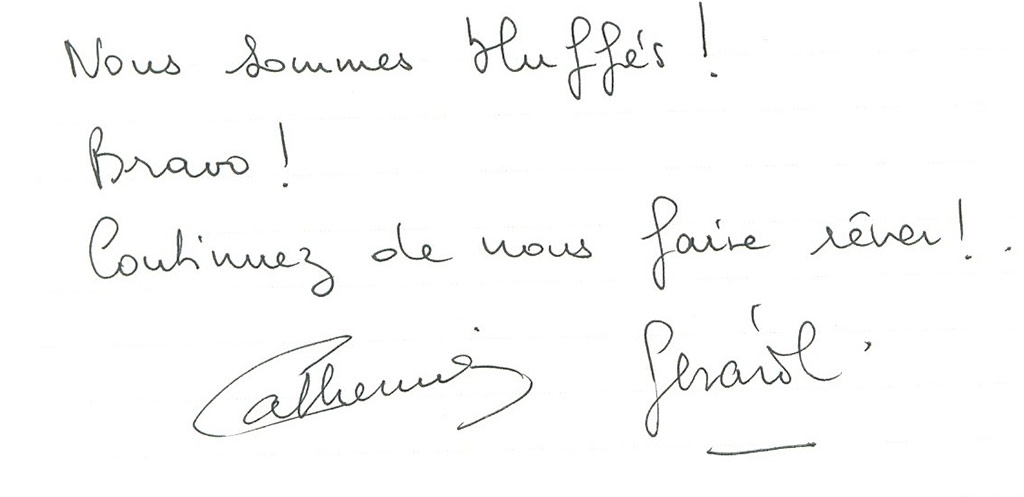 Nous sommes bluffés !
Bravo !
Continuez de nous faire rêver ! .
Catherine Gérard